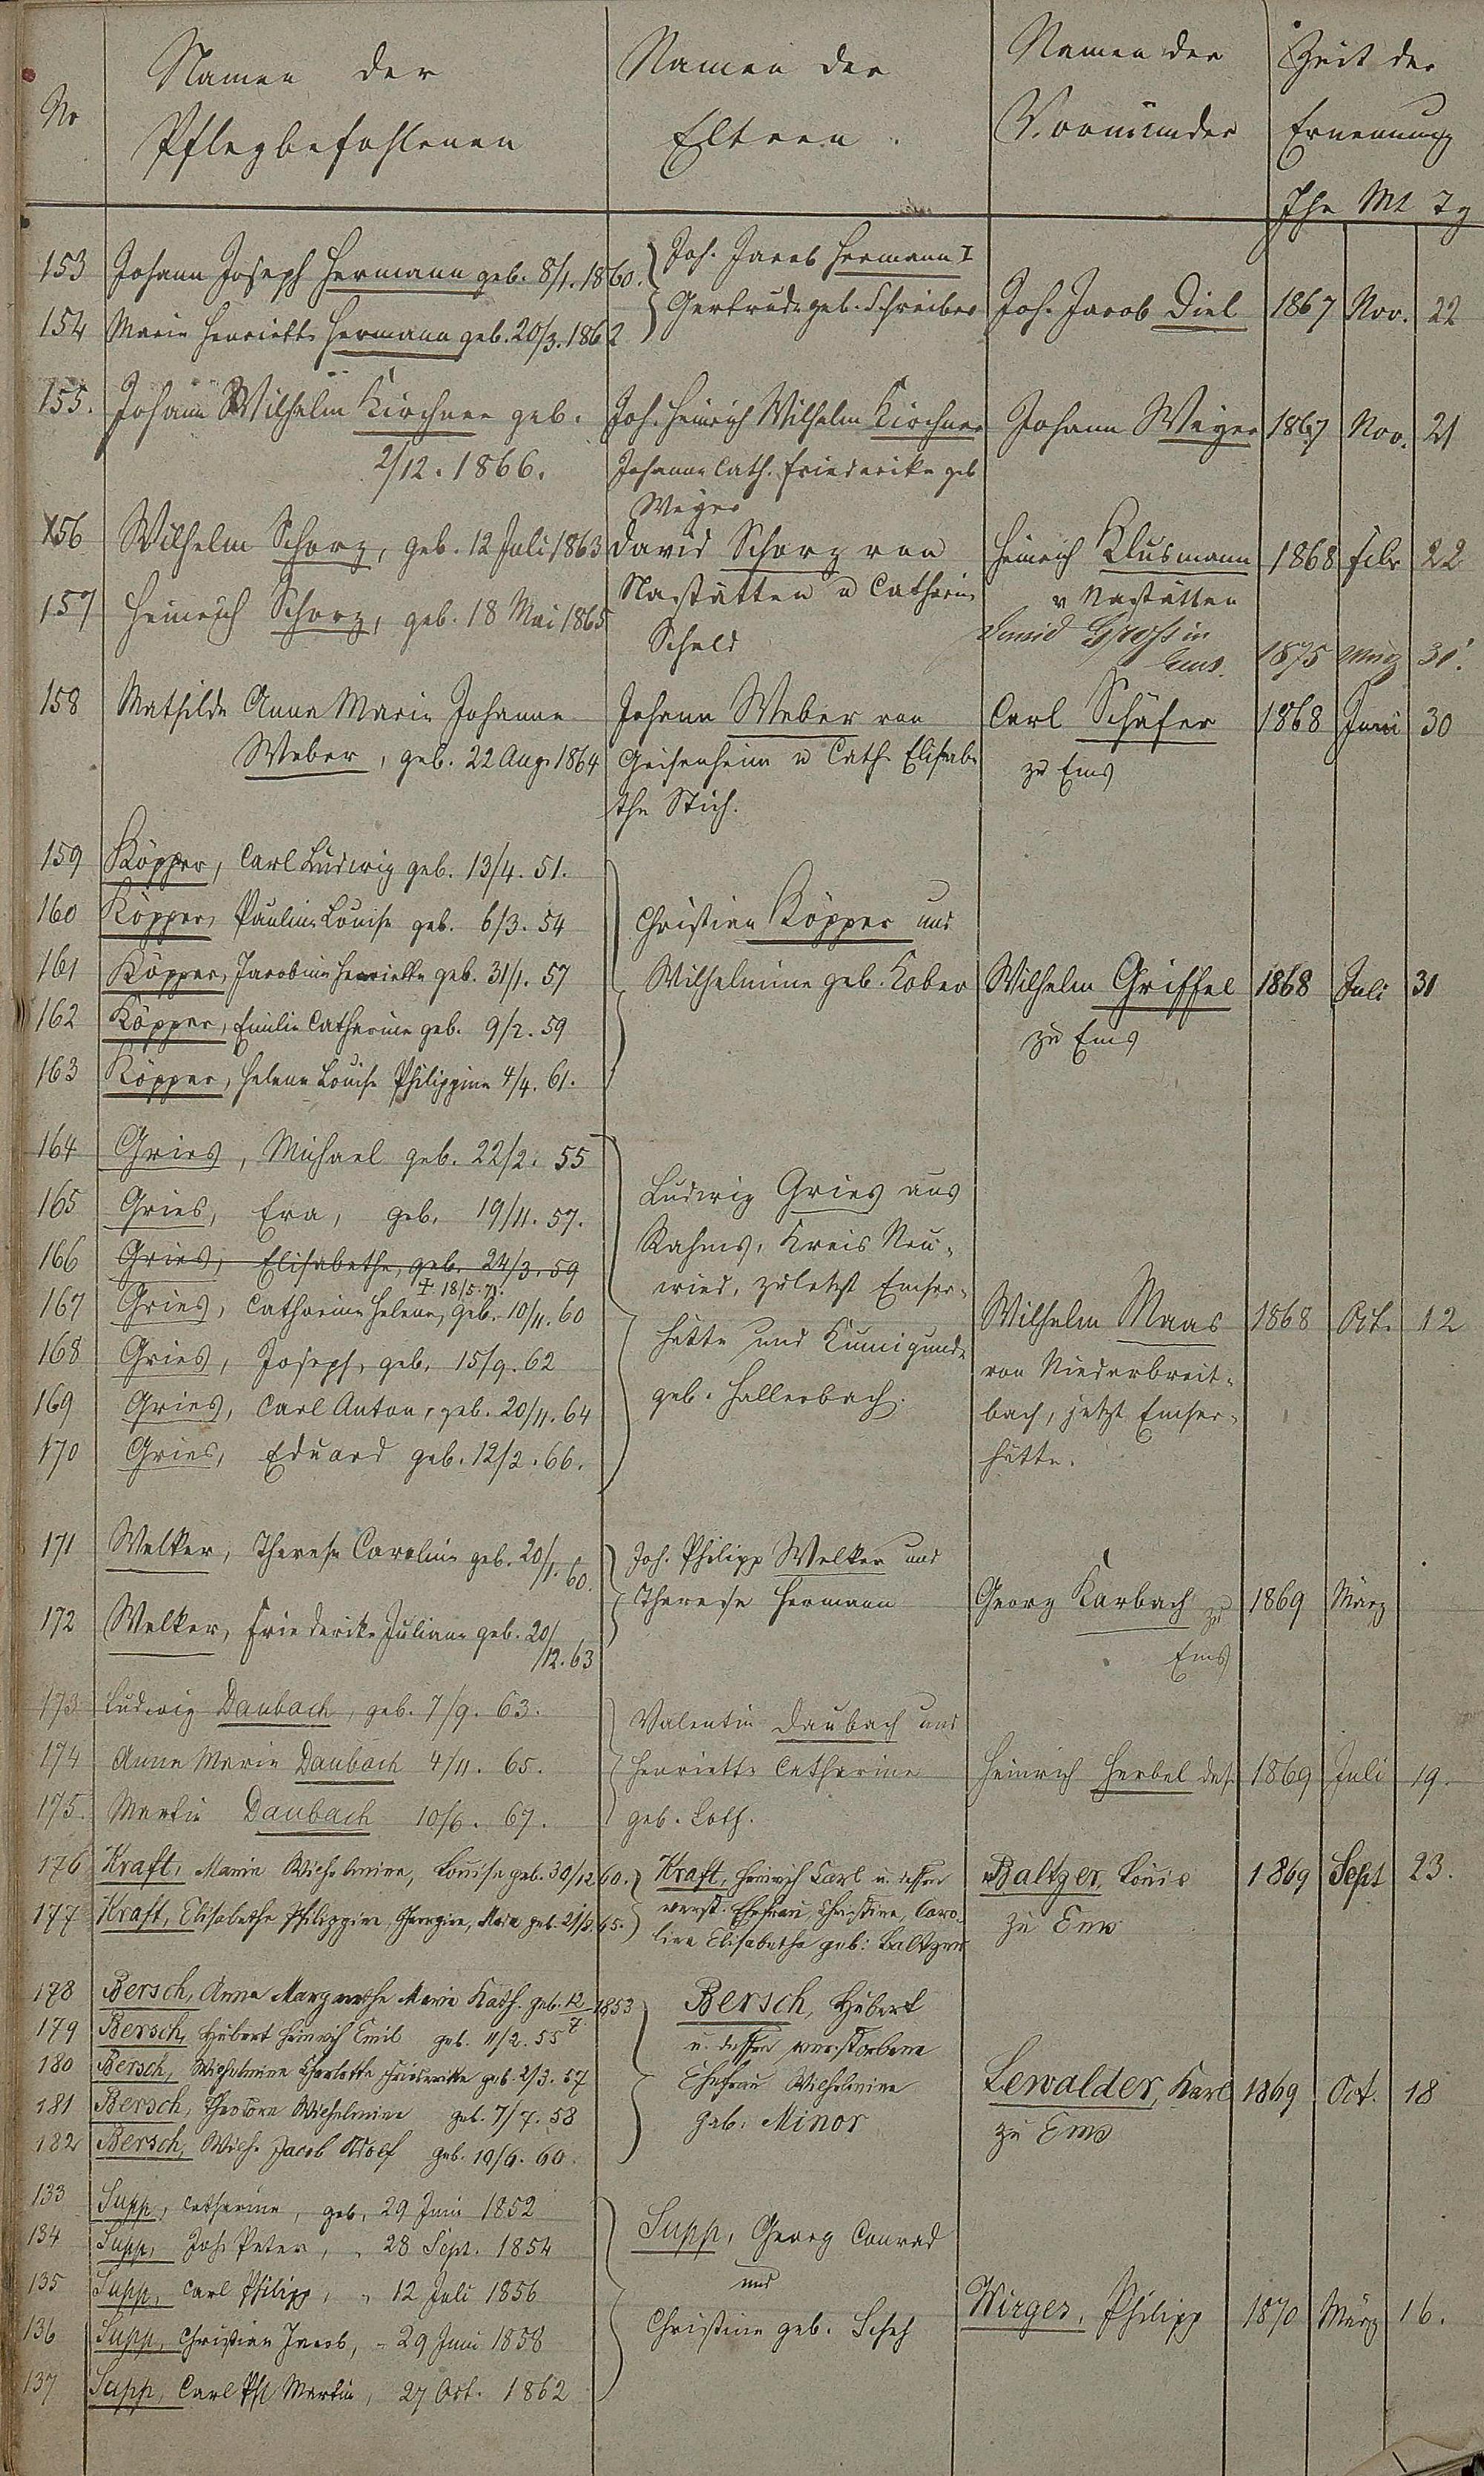 No
Namen der
Pflegbefohlenen
Namen der
Eltern.
Namen der
Vormünder
Zeit der
Ernennung
Jhr Mt Tg
153 Johann Joseph Hermann geb. 8/1. 1860.
154 Marie Henriette Hermann geb. 20/3. 1862
Joh. Jacob Hermann I
Gertrude geb. Schreiber
Joh. Jacob Diel 1867 Nov. 22
155. Johann Wilhelm Kirchner geb.
2/12. 1866.
Joh. Heinrich Wilhelm Kirchner
Johanne Cath. Friederike geb
Weyer
Johann Weyer 1867 Nov. 21
156 Wilhelm Schorz, geb. 12 Juli 1863
157 Heinrich Schorz, geb. 18 Mai 1865
David Schorz von
Nastätten u Catharine
Scheld
Heinrich Klusmann 1868 Febr 22
v Nastätten
David Gross in
Ems. 1875 März 31.
158 Mathilde Anna Marie Johanne
Weber, geb. 22 Aug. 1864
Johann Weber von
Geisenheim u Cath. Elisabe
the Stich.
Carl Schäfer 1868 Juni 30
zu Ems
159 Köpper, Carl Ludwig geb. 13/4. 51.
160 Köpper, Pauline Louise geb. 6/3. 54
161 Köpper, Jacobine Henriette geb. 31/1. 57
162 Köpper, Emilie Catharine geb. 9/2. 59
163 Köpper, Helene Louise Philippine 4/4. 61.
Christian Köpper und
Wilhelmine geb. Kober
Wilhelm Griffel 1868 Juli 31
zu Ems
164 Gries, Michael geb. 22/2. 55
165 Gries, Eva, geb. 19/11. 57.
166 Gries, Elisabethe, geb. 24/3. 59
† 18/5. 71.
167 Gries, Catharine Helene, geb. 10/11. 60
168 Gries, Joseph, geb. 15/9. 62
169 Gries, Carl Anton, geb. 20/11. 64
170 Gries, Eduard geb. 12/2. 66.
Ludwig Gries aus
Rahms, Kreis Neu-
wied, zuletzt Emser-
hütte und Kunigunde
geb. Hallerbach.
Wilhelm Maas 1868 Oct. 12
von Niederbreit-
bach, jetzt Emser-
hütte.
171 Welker, Therese Caroline geb. 20/1. 60.
172 Welker, Friederike Juliane geb. 20/12. 63
Joh. Philipp Welker und
Therese Hermann
Georg Karbach zu 1869 März
Ems
173 Ludwig Daubach, geb. 7/9. 63.
174 Anna Marie Daubach 4/11. 65.
175. Martin Daubach 10/6. 67.
Valentin Daubach und
Henriette Catharine
geb. Loth.
Heinrich Herbel das. 1869 Juli 19.
176 Kraft, Marie Wilhelmine, Louise geb. 30/12 60.
177 Kraft, Elisabethe Philippine, Georgine, Marie geb. 21/8. 65.
Kraft, Heinrich Carl u. dessen
verst. Ehefrau, Christine, Caro-
line Elisabethe geb: Baltzer
Baltzer, Louis 1869 Sept 23.
zu Ems
178 Bersch, Anna Margarethe Marie Kath. geb. 12/7 1853
179 Bersch, Hubert Heinrich Emil geb. 11/2. 55
180 Bersch, Wilhelmine Charlotte Friederike geb. 2/3. 57
181 Bersch, Theodore Wilhelmine geb. 7/7. 58
182 Bersch, Wilh. Jacob Adolf geb. 10/6. 60.
Bersch, Hubert
u. dessen verstorbene
Ehefrau Wilhelmine
geb: Minor
Lewalder, Karl 1869 Oct. 18
zu Ems
133 Supp, Catharine, geb. 29 Juni 1852
134 Supp, Joh. Peter, " 28 Sept. 1854
135 Supp, Carl Philipp, " 12 Juli 1856
136 Supp, Christian Jacob, " 29 Juni 1858
137 Supp, Carl Phl Martin, 27 Oct. 1862
Supp, Georg Conrad
und
Christine geb. Scheh
Wirges, Philipp 1870 März 16.